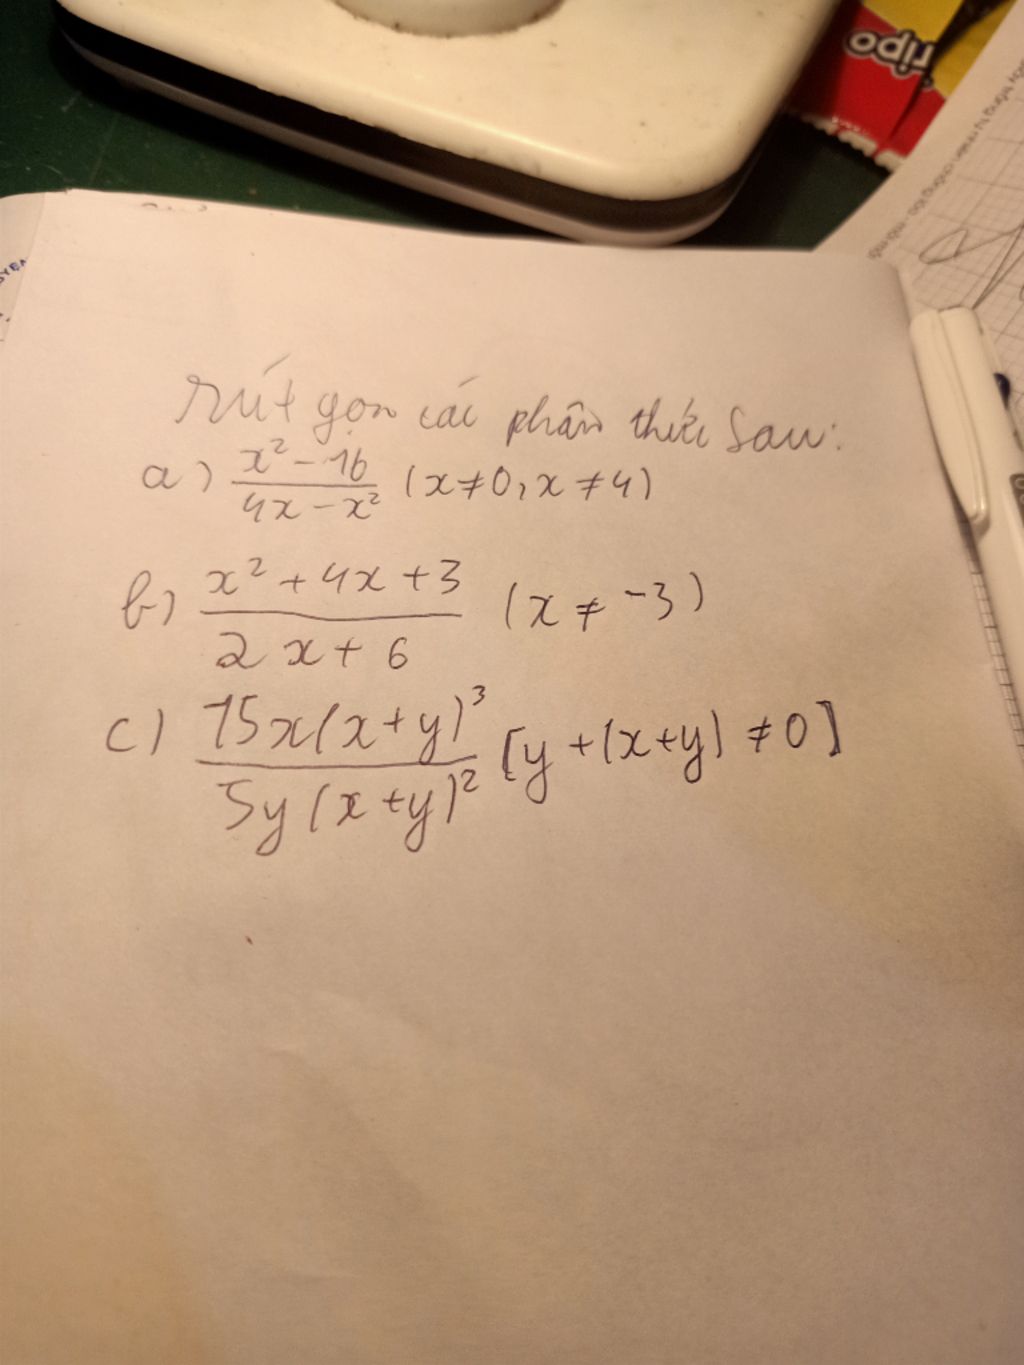 ripo
rút gọn các phân thức sau:
a) \frac{x² - 16}{4x - x²} (x ≠ 0, x ≠ 4)
b) \frac{x² + 4x + 3}{2x + 6} (x ≠ -3)
c) \frac{15x(x+y)³}{5y(x+y)²} [y + (x+y) ≠ 0]